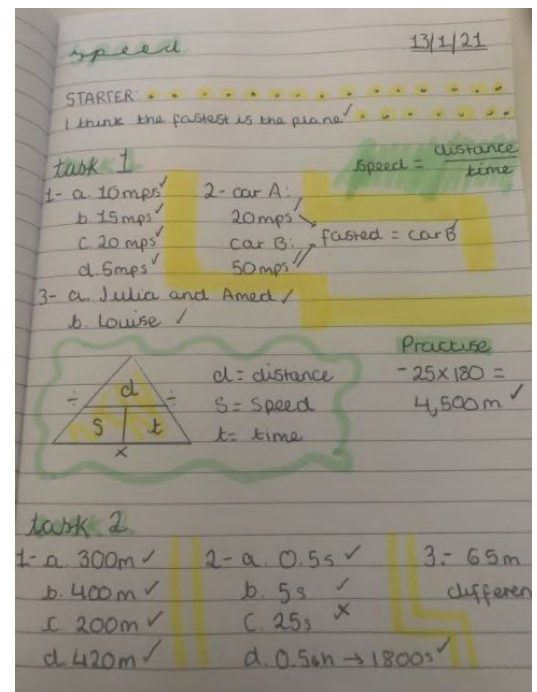 speed
13/1/21
STARTER:
I think the fastest is the plane ✓
task 1
speed = distance / time
1- a. 10mps ✓
b. 15mps ✓
c. 20mps ✓
d. 5mps ✓
2- car A:
20mps ✓
car B:
50mps ✓
fasted = car B ✓
3- a. Julia and Amed ✓
b. Louise ✓
÷ d ÷
s t
x
d = distance
S = speed
t = time
Practise
- 25 x 180 =
4,500m ✓
task 2
1- a. 300m ✓
b. 400m ✓
c. 200m ✓
d. 420m ✓
2- a. 0.5s ✓
b. 5s ✓
c. 25s x
d. 0.5h → 1800s ✓
3.- 65m
differen